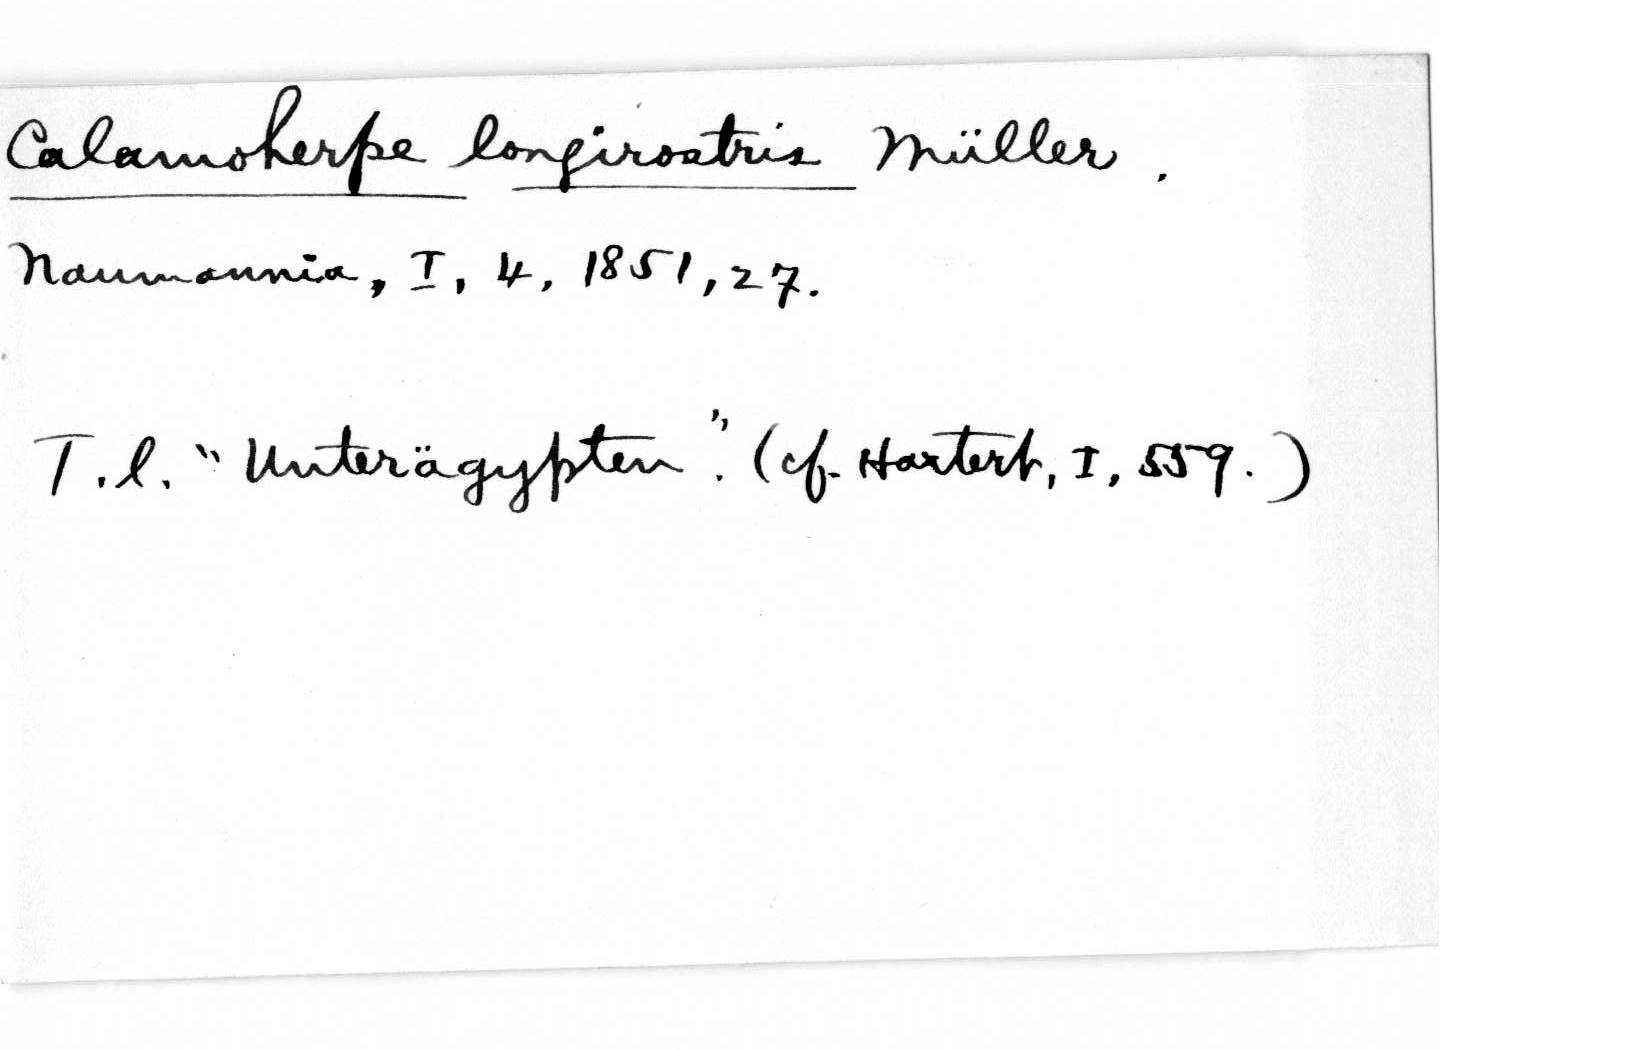 Calamoherpe longirostris Müller.
Naumannia, I, 4, 1851, 27.
T.l. "Unterägypten". (cf. Hartert, I, 559.)